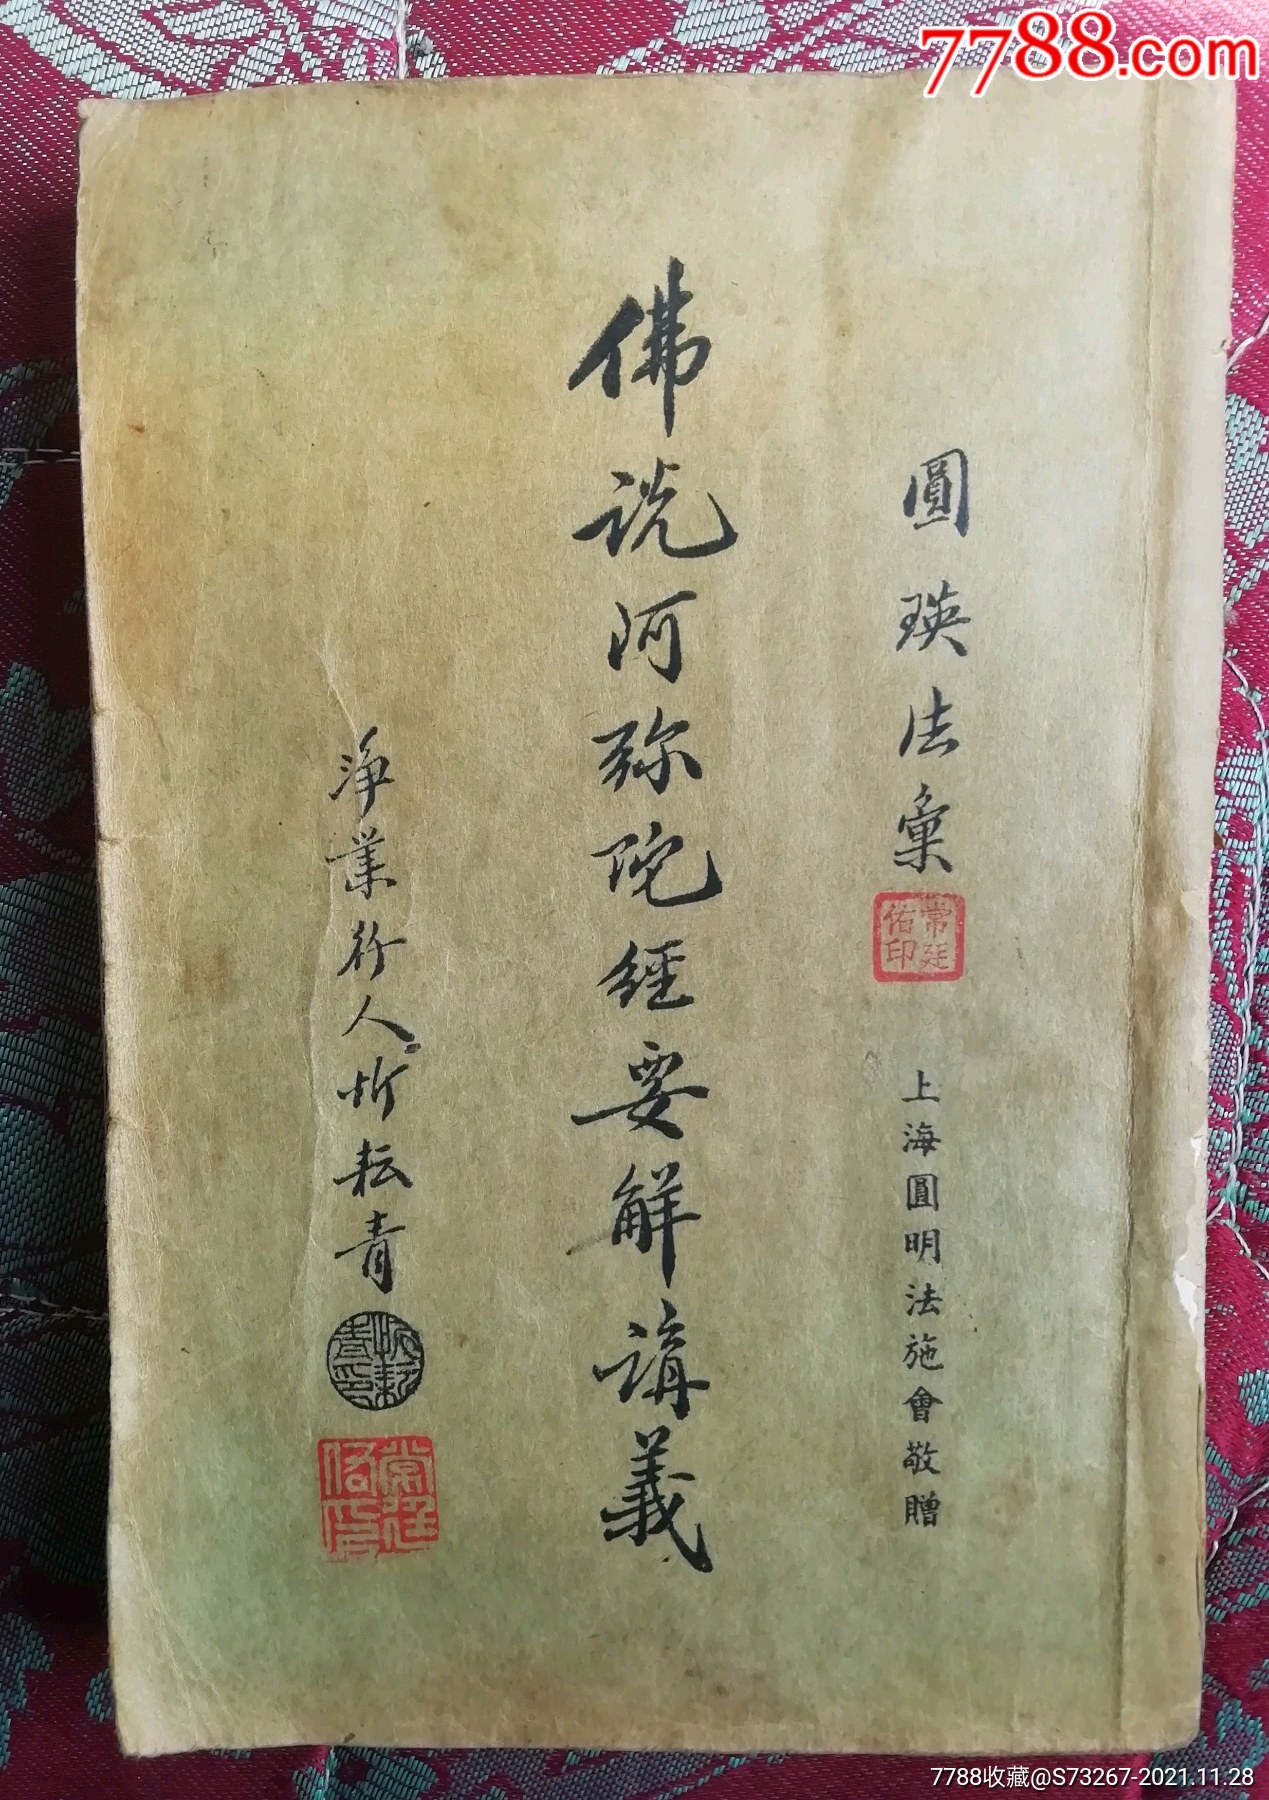 7788.com
圓瑛法彙
常廷
佑印
上海圓明法施會敬贈
佛说阿弥陀經要解講義
淨業行人忻耘青
7788收藏@S73267-2021.11.28